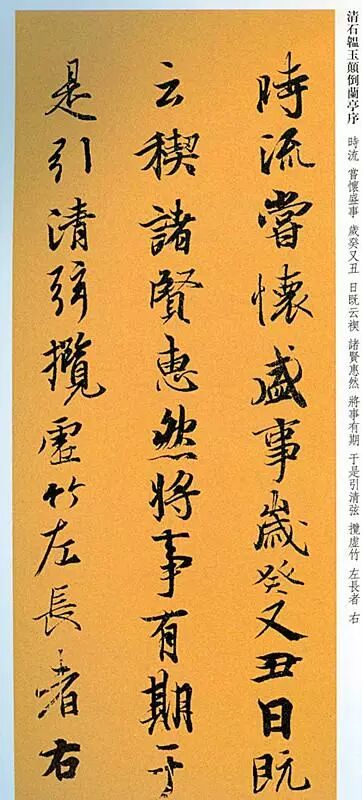 清石韞玉顛倒蘭亭序
時流 嘗懷盛事 歲癸又丑 日既云禊 諸賢惠然 將事有期 于是引清弦 攬虛竹 左長者 右
時流嘗懷盛事歲癸又丑日既
云禊諸賢惠然將事有期于
是引清弦攬虛竹左長者右